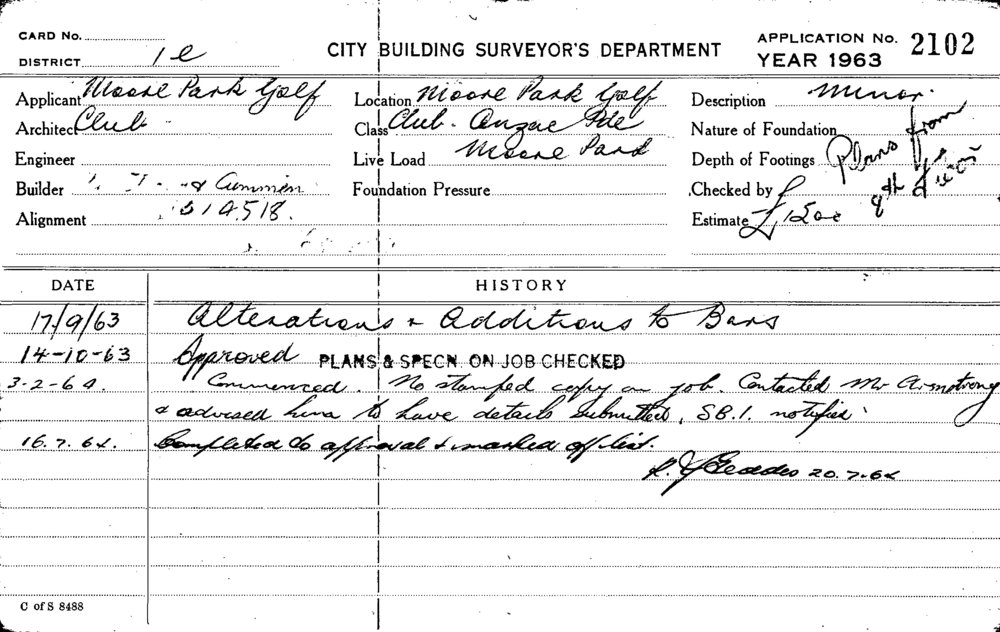 CARD No.
DISTRICT 1e
CITY BUILDING SURVEYOR'S DEPARTMENT
APPLICATION No. 2102
YEAR 1963
Applicant Moore Park Golf
Location Moore Park Golf
Description Minor.
Architect Club
Class Club. Anzac Pde
Nature of Foundation
Engineer
Live Load Moore Park
Depth of Footings Plans from
Builder
Foundation Pressure
Checked by
Alignment
Estimate
DATE HISTORY
17/9/63 Alterations & Additions to Bars
14-10-63 Approved PLANS & SPECN. ON JOB CHECKED
3-2-64. Commenced. No stamped copy on job. Contacted Mr Armstrong
& advised him to have details submitted. SB.1. notified
16.7.64. Completed to approval & marked off list.
Geddes 20.7.64
C of S 8488